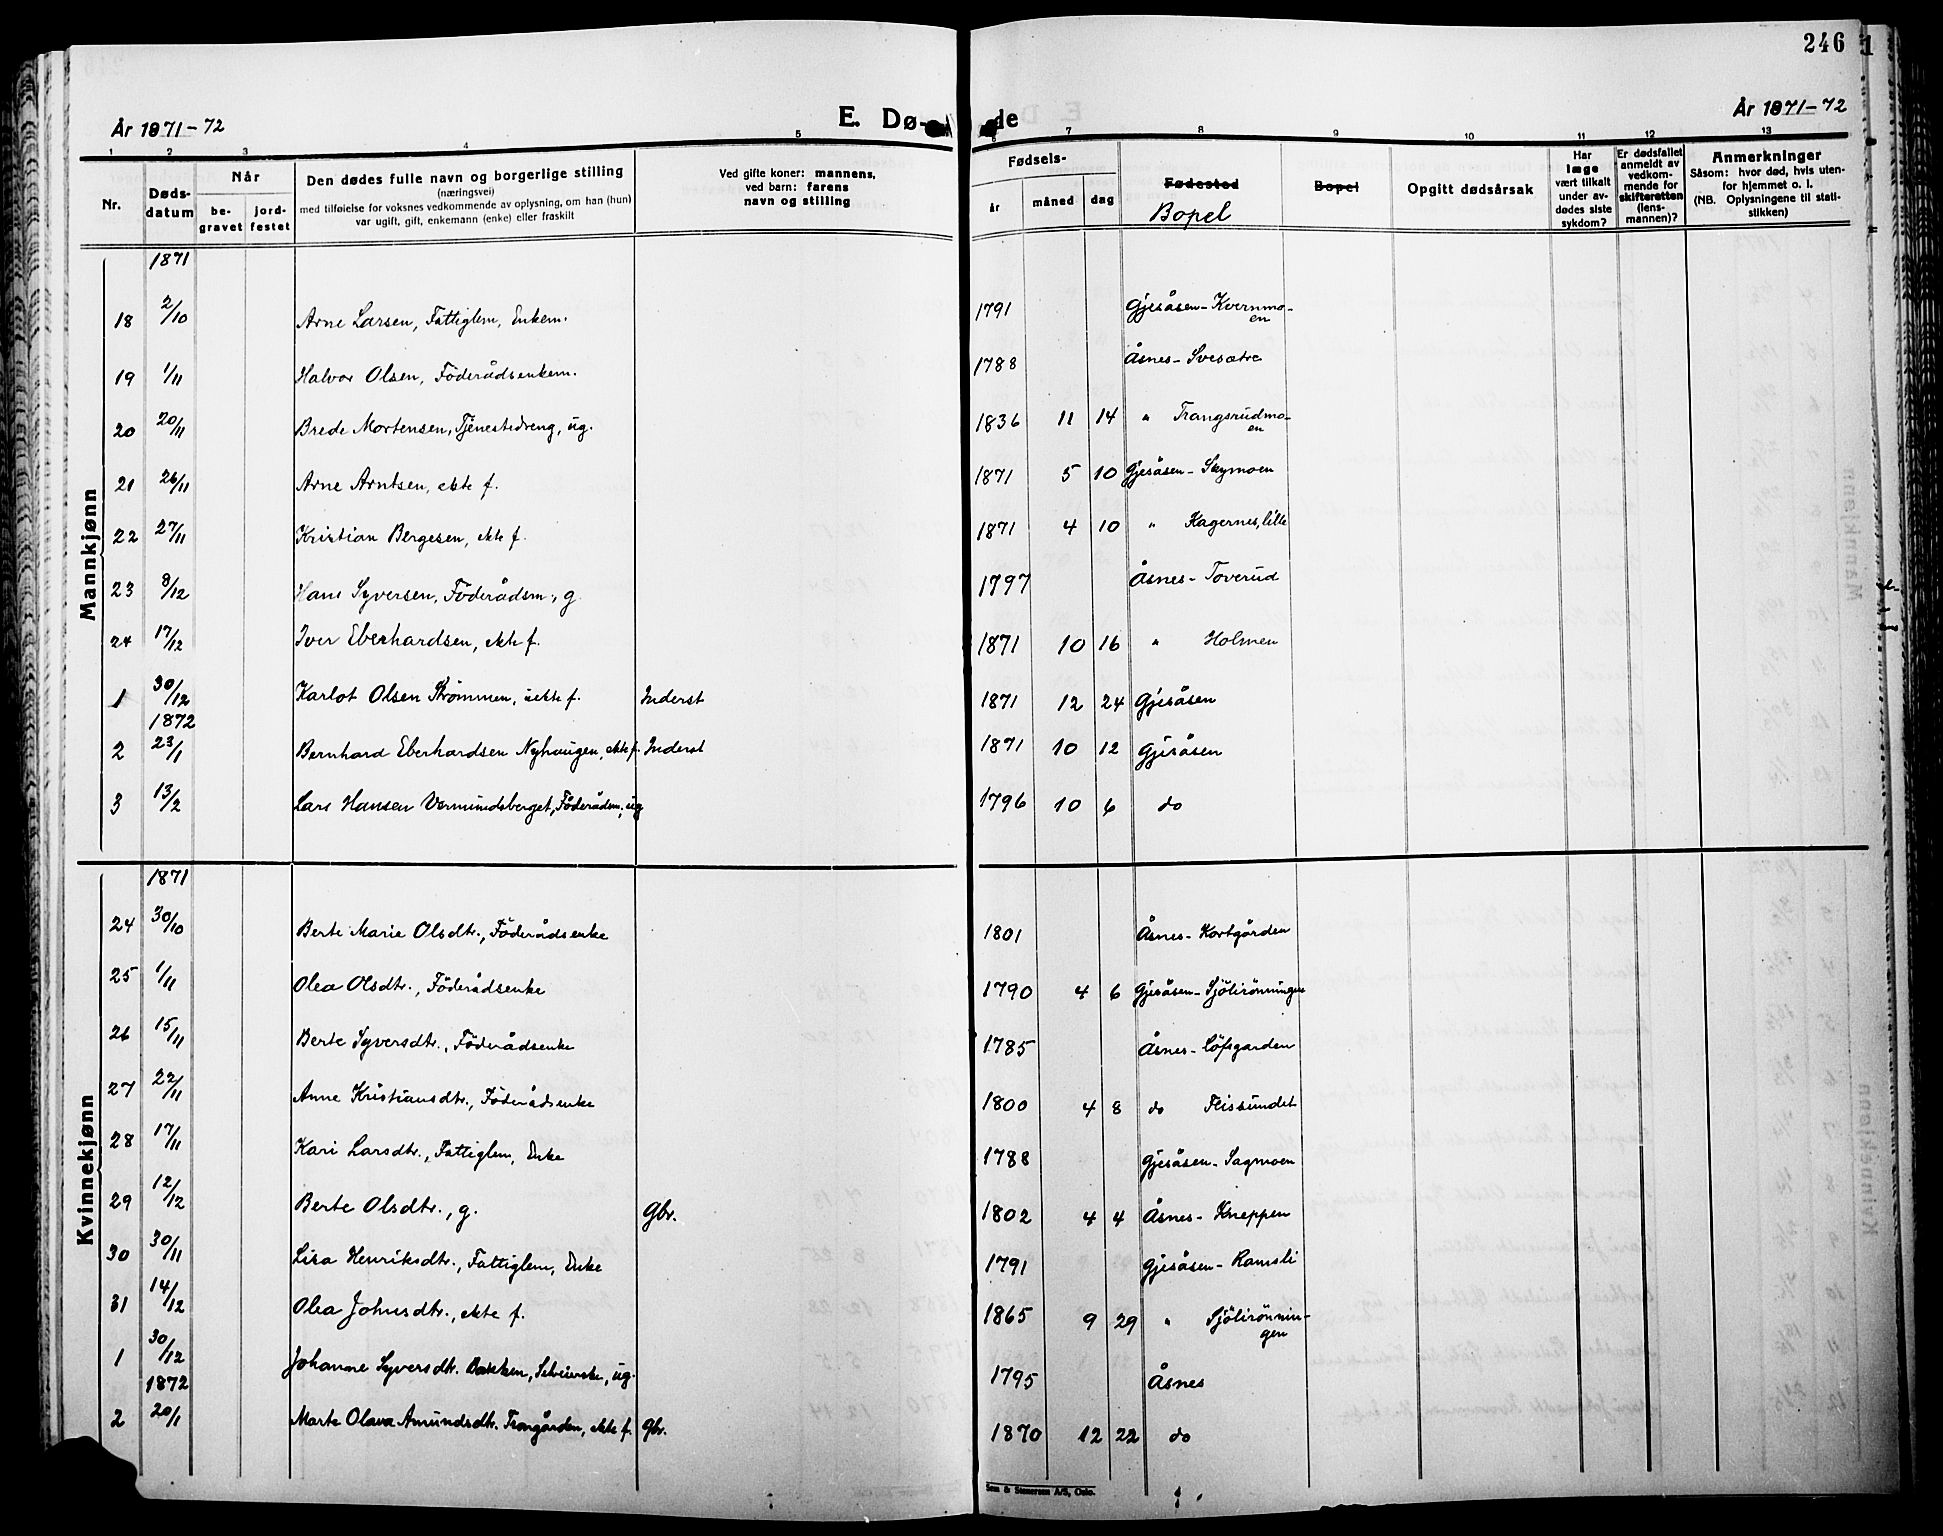 246
År 1871-72
E. Dø-
de
År 1871-72
1 2 3 4 5 7 8 9 10 11 12 13
Nr.
Døds-
datum
Når
be-
gravet
jord-
festet
Den dødes fulle navn og borgerlige stilling
(næringsvei)
med tilføielse for voksnes vedkommende av oplysning, om han (hun)
var ugift, gift, enkemann (enke) eller fraskilt
Ved gifte koner: mannens,
ved barn: farens
navn og stilling
Fødsels-
år måned dag
Fødested
Bopel
Bopel
Opgitt dødsårsak
Har
læge
vært tilkalt
under av-
dødes siste
sykdom?
Er dødsfallet
anmeldt av
vedkom-
mende for
skifteretten
(lens-
mannen)?
Anmerkninger
Såsom: hvor død, hvis uten-
for hjemmet o. l.
(NB. Oplysningene til stati-
stikken)
Mannkjønn
1871
18 2/10 Arne Larsen, Fattiglem, Enkem. 1791 Gjesåsen-Kvernmo-
en
19 1/11 Halvor Olsen, Föderådsenkem. 1788 Åsnes-Svesætre
20 20/11 Brede Mortensen, Tjenestedreng, ug. 1836 11 14 " Trangsrudmo-
en
21 26/11 Arne Arntsen, ekte f. 1871 5 10 Gjesåsen-Skymoen
22 27/11 Kristian Bergesen, ekte f. 1871 4 10 " Kagernes, lille
23 8/12 Hans Syversen, Föderådsm., g. 1797 Åsnes-Toverud
24 17/12 Iver Eberhardsen, ekte f. 1871 10 16 " Holmen
1 30/12 Karlot Olsen Strömmen, uekte f. Inderst 1871 12 24 Gjesåsen
1872
2 23/1 Bernhard Eberhardsen Nyhaugen, ekte f. Inderst 1871 10 12 Gjesåsen
3 13/2 Lars Hansen Vermundsberget, Föderådsm., ug 1796 10 6 do
Kvinnekjønn
1871
24 30/10 Berte Marie Olsdtr., Föderådsenke 1801 Åsnes-Kortgården
25 1/11 Olea Olsdtr., Föderådsenke 1790 4 6 Gjesåsen-Sjölirönningen
26 15/11 Berte Syversdtr., Föderådsenke 1785 Åsnes-Löfsgarden
27 22/11 Anne Kristiansdtr., Föderådsenke 1800 4 8 do Flissundet
28 17/11 Kari Larsdtr., Fattiglem, Enke 1788 Gjesåsen-Sagmoen
29 12/12 Berte Olsdtr., g. Gbr. 1802 4 4 Åsnes-Kneppen
30 30/11 Lisa Henriksdtr., Fattiglem, Enke 1791 Gjesåsen-Ramsli
31 14/12 Olea Johnsdtr., ekte f. 1865 9 29 " Sjölirönnin-
gen
1 30/12 Johanne Syversdtr. Bakken, Selveierske, ug. 1795 Åsnes
1872
2 20/1 Marte Olava Amundsdtr. Trongården, ekte f. Gbr. 1870 12 22 do
Sem & Stenersen A/S, Oslo.